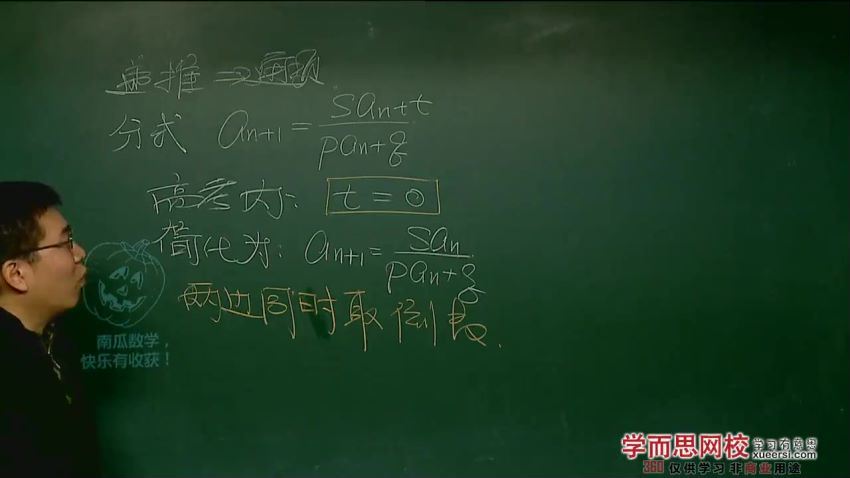 递推⇒两项
分式 aₙ₊₁ = (saₙ+t)/(paₙ+q)
高考内: t=0
简化为: aₙ₊₁ = saₙ/(paₙ+q)
两边同时取倒数.
南瓜数学,
快乐有收获!
学而思网校 学习有意思
xueersi.com
360 仅供学习 非商业用途